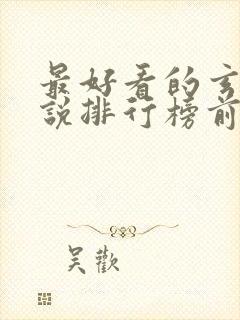 最好看的玄
說排行榜前
吴歡